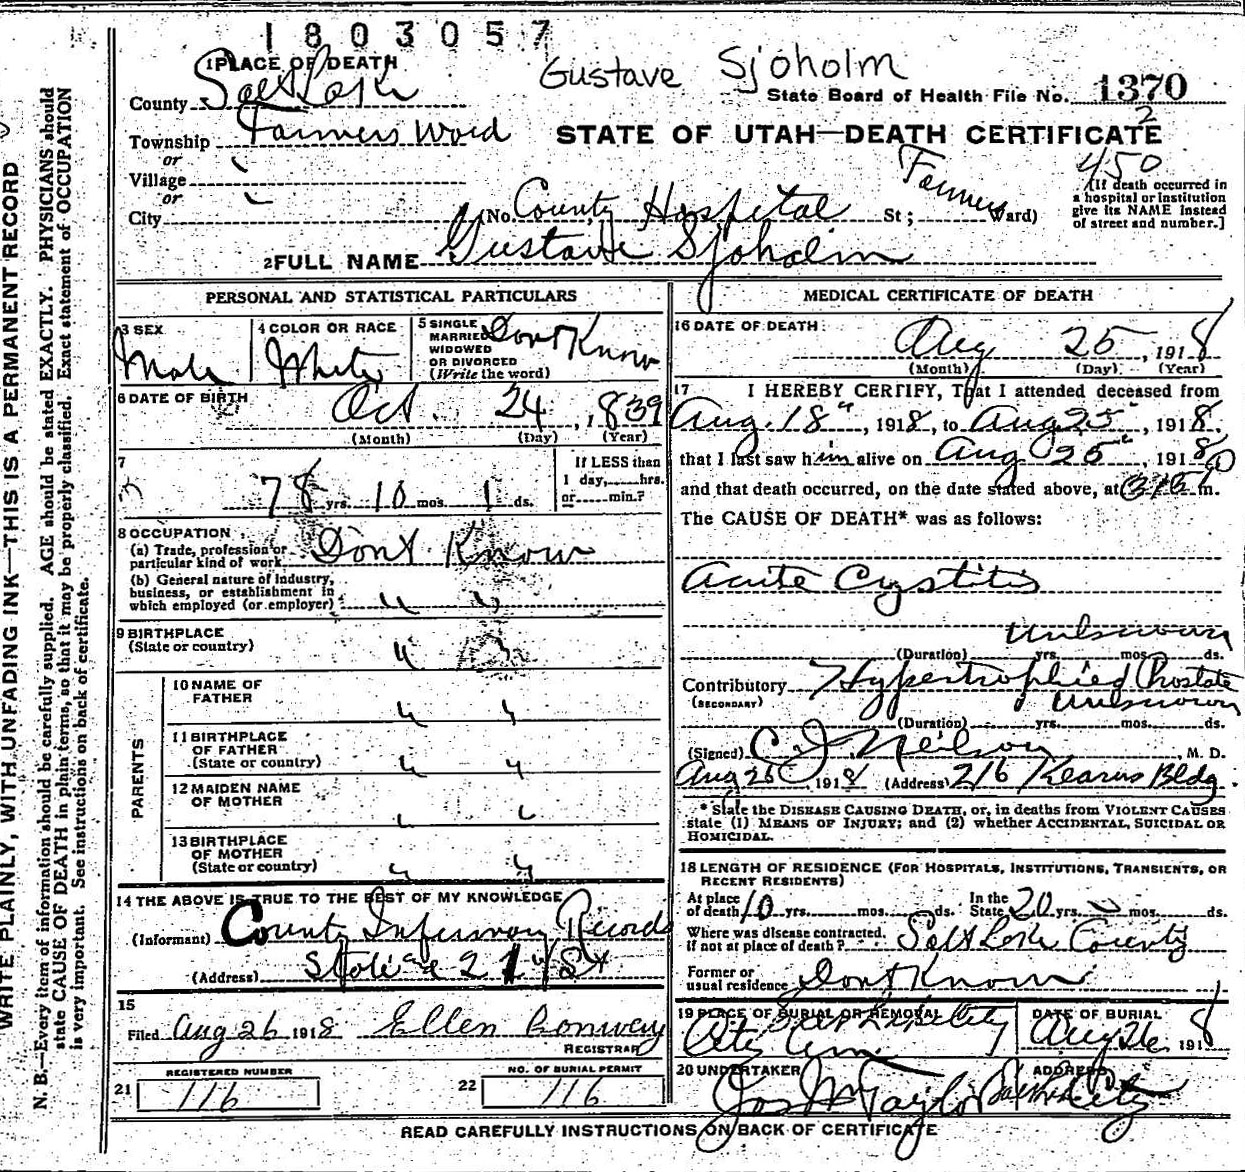 1803057
Gustave Sjoholm
1 PLACE OF DEATH
County Salt Lake
State Board of Health File No. 1370
Township Farmers Ward
STATE OF UTAH—DEATH CERTIFICATE
2
or
Village
or
City
(No. County Hospital St; Farmers Ward)
450
[If death occurred in a hospital or institution give its NAME instead of street and number.]
2 FULL NAME Gustave Sjoholm
PERSONAL AND STATISTICAL PARTICULARS
3 SEX
Male
4 COLOR OR RACE
White
5 SINGLE
MARRIED
WIDOWED
OR DIVORCED
(Write the word)
Dont Know
6 DATE OF BIRTH
Oct 24, 1839
(Month) (Day) (Year)
7
78 yrs. 10 mos. 1 ds.
If LESS than
1 day, hrs.
or min.?
8 OCCUPATION
(a) Trade, profession or
particular kind of work Dont Know
(b) General nature of industry,
business, or establishment in
which employed (or employer) " "
9 BIRTHPLACE
(State or country) "
PARENTS
10 NAME OF
FATHER " "
11 BIRTHPLACE
OF FATHER
(State or country) " "
12 MAIDEN NAME
OF MOTHER " "
13 BIRTHPLACE
OF MOTHER
(State or country) " "
14 THE ABOVE IS TRUE TO THE BEST OF MY KNOWLEDGE
(Informant) County Infirmary Records
(Address) State & 21st St
15
Filed Aug 26 1918 Ellen Conway
REGISTRAR
REGISTERED NUMBER
21 116
NO. OF BURIAL PERMIT
22 116
MEDICAL CERTIFICATE OF DEATH
16 DATE OF DEATH
Aug 25, 1918
(Month) (Day) (Year)
17 I HEREBY CERTIFY, That I attended deceased from
Aug. 18", 1918, to Aug 25", 1918,
that I last saw him alive on Aug 25", 1918,
and that death occurred, on the date stated above, at m.
The CAUSE OF DEATH* was as follows:
Acute Cystitis
Unknown
(Duration) yrs. mos. ds.
Contributory Hypertrophied Prostate
(SECONDARY)
Unknown
(Duration) yrs. mos. ds.
(Signed) C J Neilson, M. D.
Aug 26 1918 (Address) 216 Kearns Bldg.
* State the DISEASE CAUSING DEATH, or, in deaths from VIOLENT CAUSES
state (1) MEANS OF INJURY; and (2) whether ACCIDENTAL, SUICIDAL OR
HOMICIDAL.
18 LENGTH OF RESIDENCE (FOR HOSPITALS, INSTITUTIONS, TRANSIENTS, OR
RECENT RESIDENTS)
At place
of death 10 yrs. mos. ds. In the
State 20 yrs. mos. ds.
Where was disease contracted,
if not at place of death? Salt Lake County
Former or
usual residence Dont Know
19 PLACE OF BURIAL OR REMOVAL
Salt Lake City
City Cem.
DATE OF BURIAL
Aug 26, 1918
20 UNDERTAKER
Jos Wm Taylor
ADDRESS
Salt Lake City
READ CAREFULLY INSTRUCTIONS ON BACK OF CERTIFICATE
WRITE PLAINLY, WITH UNFADING INK—THIS IS A PERMANENT RECORD
N. B.—Every item of information should be carefully supplied. AGE should be stated EXACTLY. PHYSICIANS should
state CAUSE OF DEATH in plain terms, so that it may be properly classified. Exact statement of OCCUPATION
is very important. See instructions on back of certificate.